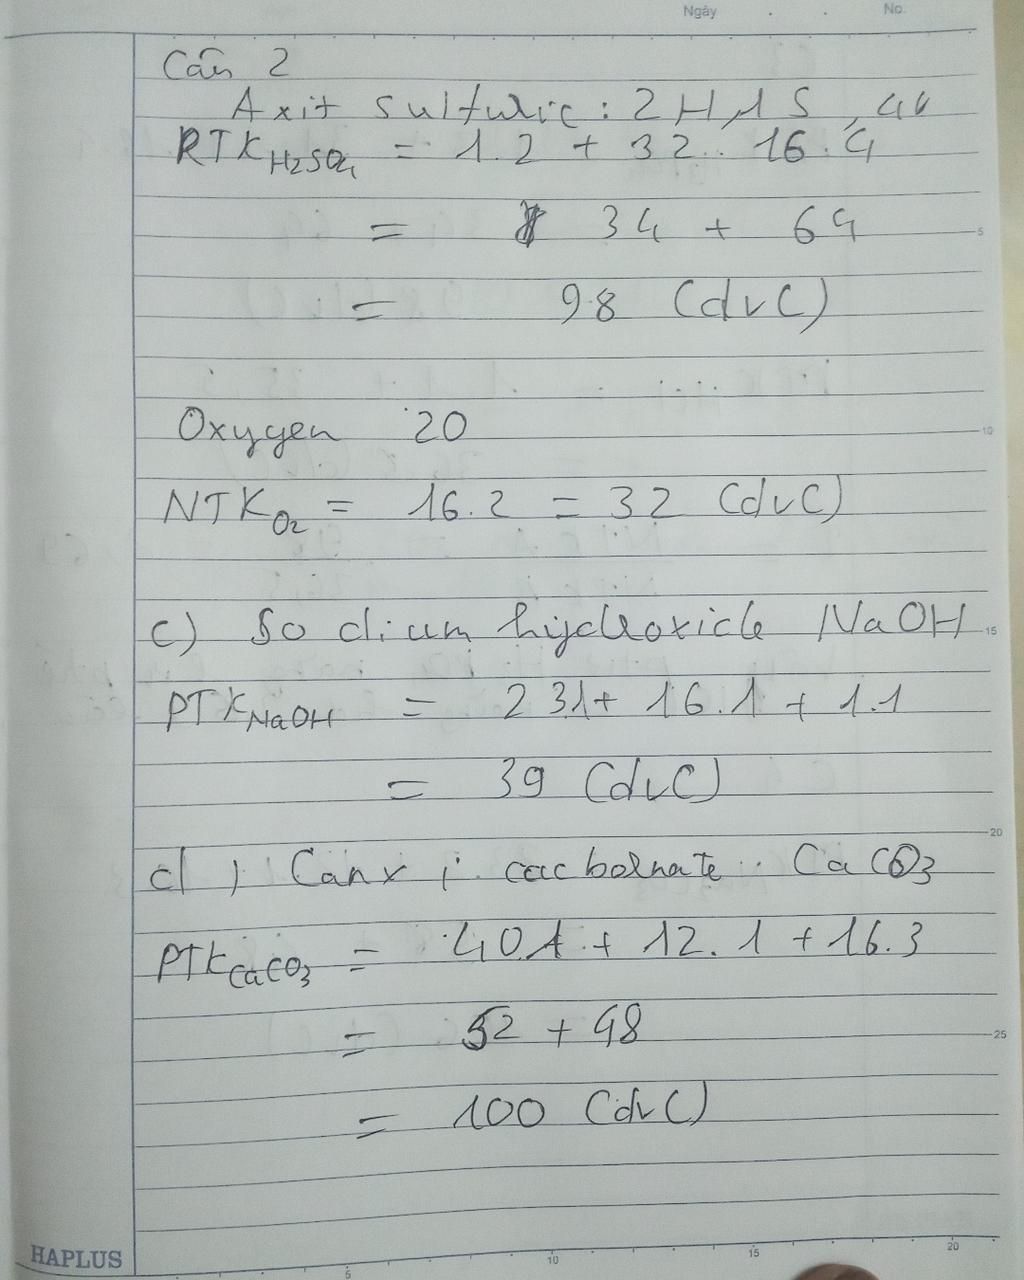 Ngày . . No.
Câu 2
Axit sulfuric : 2 H, 1 S, 4
RTK H2SO4 = 1.2 + 32 . 16.4
= 34 + 64
= 98 (dvC)
Oxygen 20
NTK O2 = 16.2 = 32 (dvC)
c) Sodium hydroxide NaOH
PTK NaOH = 23.1 + 16.1 + 1.1
= 39 (dvC)
d) Canxi cacbolnate : CaCO3
PTK CaCO3 = 40.1 + 12.1 + 16.3
= 52 + 48
= 100 (dvC)
5
10
15
20
25
HAPLUS
5 10 15 20